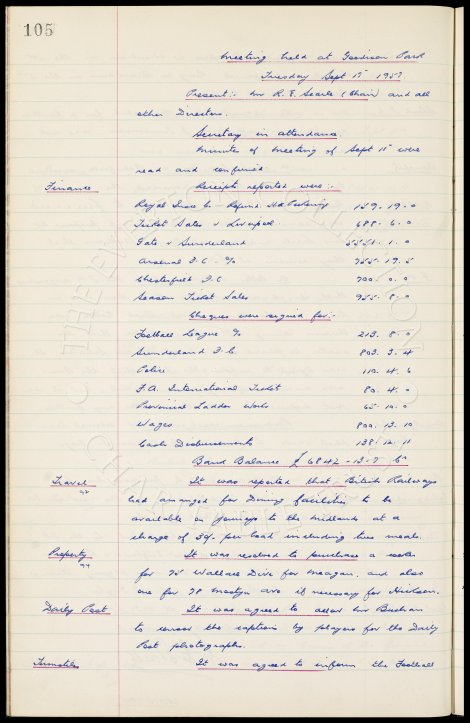 105
Meeting held at Goodison Park
Tuesday Sept 17 1957
Present:- Mr R. E. Searle (Chair) and all
other Directors.
Secretary in attendance.
Minutes of meeting of Sept 11 were
read and confirmed
Finance Receipts reported were:-
Royal Insce Co - Refund
Ticket Sales v Liverpool 688. 6. 0
Gate v Sunderland 1. 0
Arsenal F.C. % 19. 5
Chesterfield F.C 700. 0. 0
Season Ticket Sales 955. 8. 0
Cheques were signed for:-
Football League % 213. 8. 0
Sunderland F.C. 803. 3. 4
Police 110. 4. 6
F.A. International Ticket 80. 4. 0
Provincial Ladder Works 65. 10. 0
Wages 800. 13. 10
Cash Disbursements 138. 12. 11
Bank Balance £6842-13-7 Cr
Travel It was reported that British Railways
had arranged for Dining facilities to be
available on journeys to the Midlands at a
charge of per head including two meals.
Property It was resolved to purchase a cooker
for 75 Wallace Drive for Meagan, and also
one for 78 Mostyn Ave if necessary for
Daily Post It was agreed to allow Mr Buchan
to the captions by players for the Daily
Post photographs.
Turnstiles It was agreed to inform the Football
THE EVERTON COLLECTION
CHARITABLE